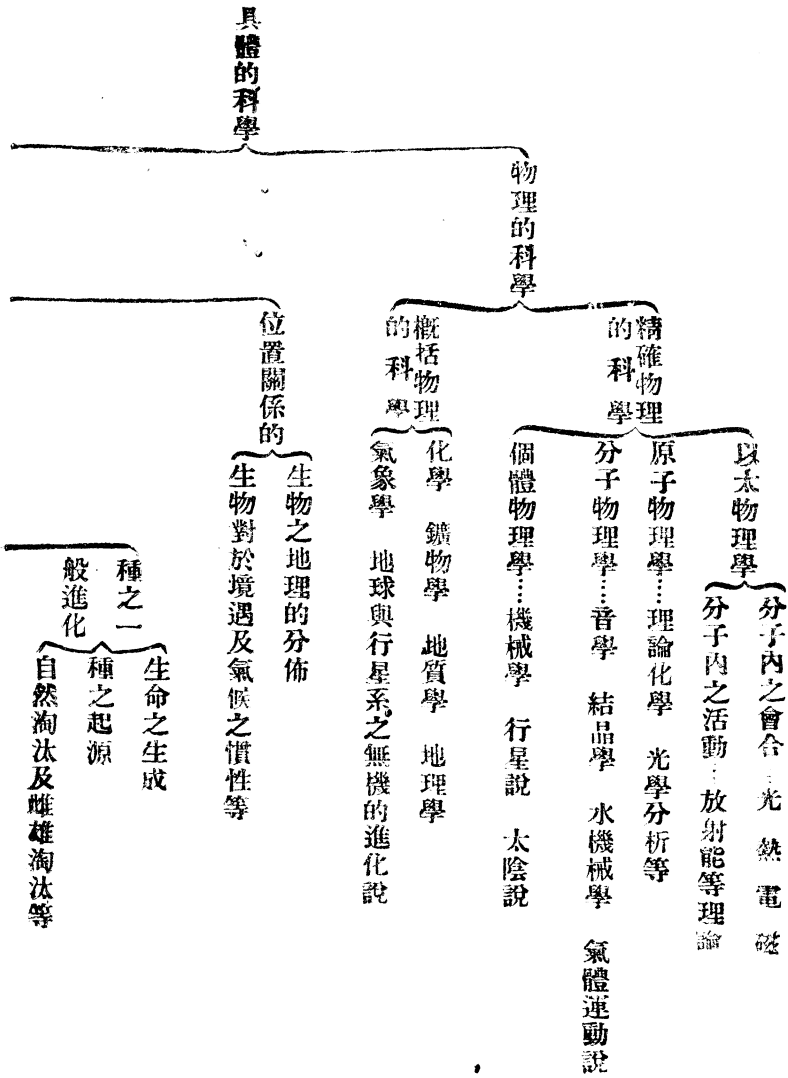 具體的科學
物理的科學
精確物理
的科學
以太物理學
分子內之會合…光　熱　電　磁
分子內之活動…放射能等理論
原子物理學……理論化學　光學分析等
分子物理學……音學　結晶學　水機械學　氣體運動說
個體物理學……機械學　行星說　太陰說
概括物理
的科學
化學　鑛物學　地質學　地理學
氣象學　地球與行星系之無機的進化說
位置關係的
生物之地理的分佈
生物對於境遇及氣候之慣性等
種之一
般進化
生命之生成
種之起源
自然淘汰及雌雄淘汰等